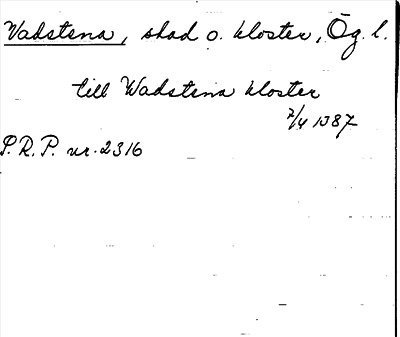 Vadstena, stad o. kloster, Ög. l.
till Wadstena kloster
7/4 1387
P.R.P. nr. 2316